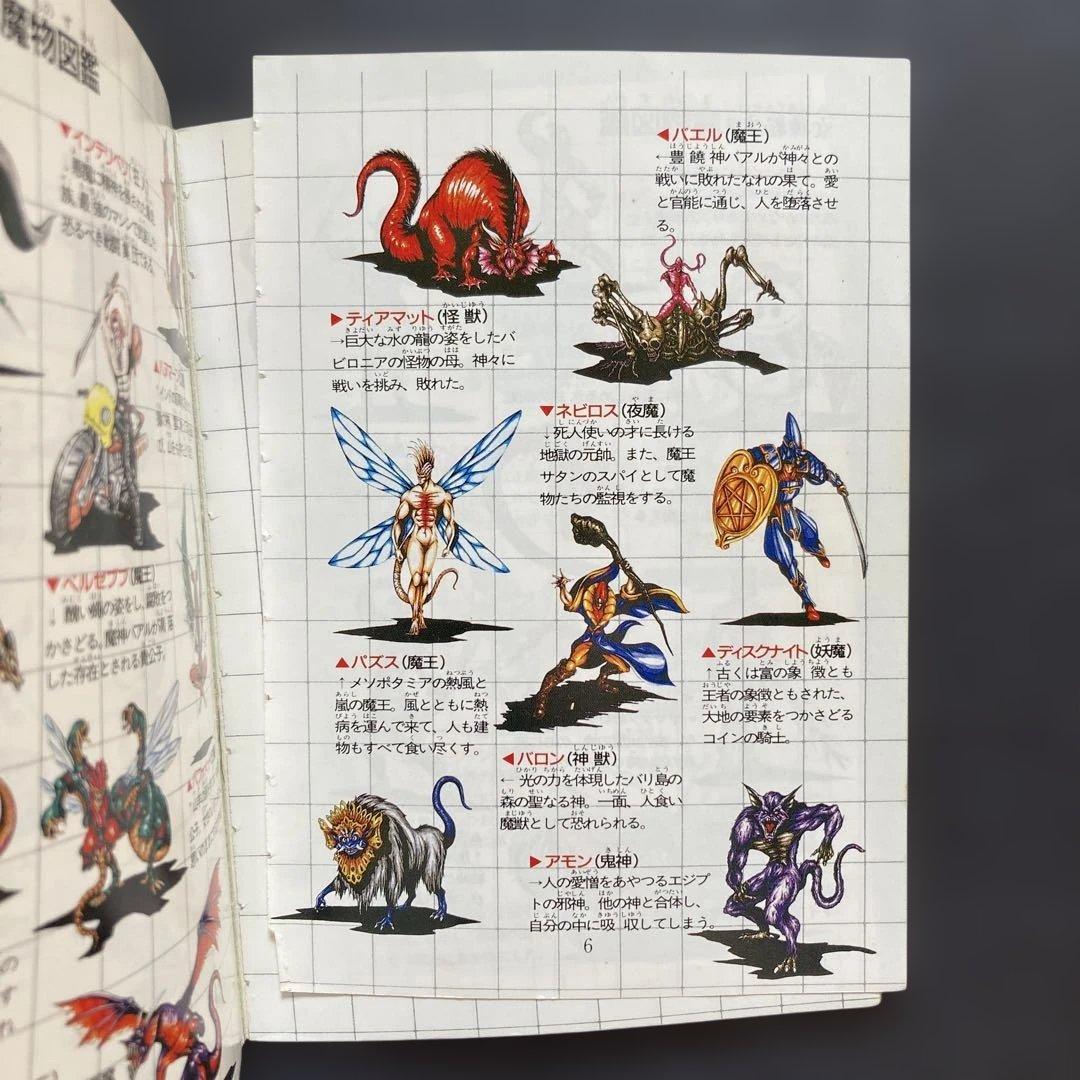 魔物図鑑
▼ベルゼブブ(魔王)
かさどる。魔神バアルが堕落
した存在とされる貴公子。
◀バエル(魔王)
←豊饒神バアルが神々との
戦いに敗れたなれの果て。愛
と官能に通じ、人を堕落させ
る。
▶ティアマット(怪獣)
→巨大な水の龍の姿をしたバ
ビロニアの怪物の母。神々に
戦いを挑み、敗れた。
▼ネビロス(夜魔)
↓死人使いの才に長ける
地獄の元帥。また、魔王
サタンのスパイとして魔
物たちの監視をする。
▲パズス(魔王)
↑メソポタミアの熱風と
嵐の魔王。風とともに熱
病を運んで来て、人も建
物もすべて食い尽くす。
▲ディスクナイト(妖魔)
↑古くは富の象徴とも
王者の象徴ともされた、
大地の要素をつかさどる
コインの騎士。
◀バロン(神獣)
←光の力を体現したバリ島の
森の聖なる神。一面、人食い
魔獣として恐れられる。
▶アモン(鬼神)
→人の愛憎をあやつるエジプ
トの邪神。他の神と合体し、
自分の中に吸収してしまう。
6